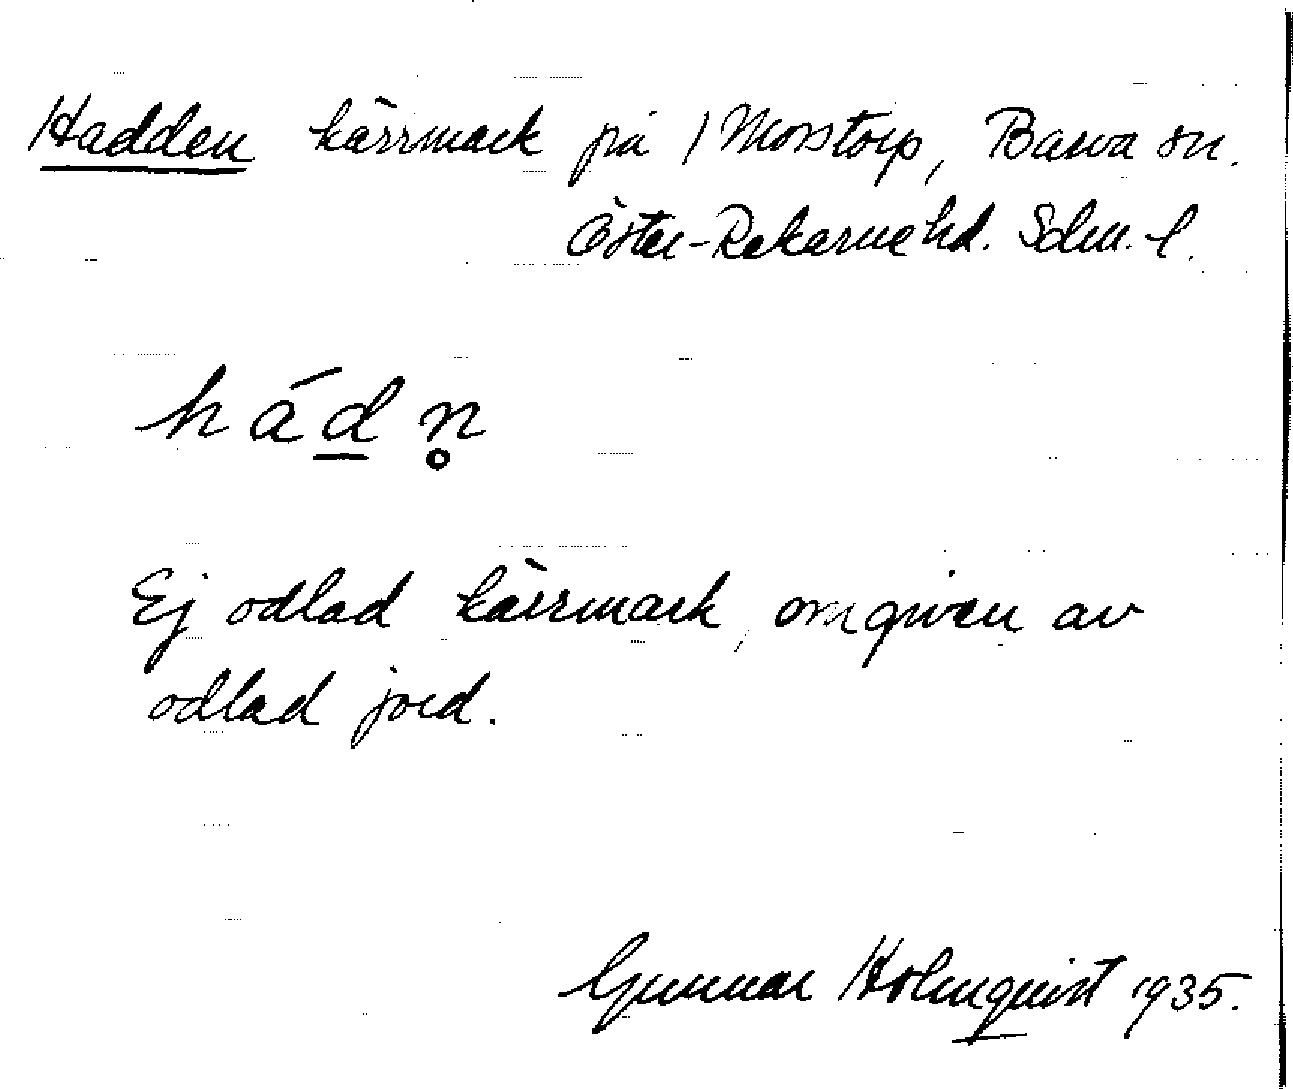 Hadden kärrmark på /Mosstorp, Barva sn.
Öster-Rekarne hd. Södm. l.
hádn̥
Ej odlad kärrmark, omgiven av
odlad jord.
Gunnar Holmquist 1935.